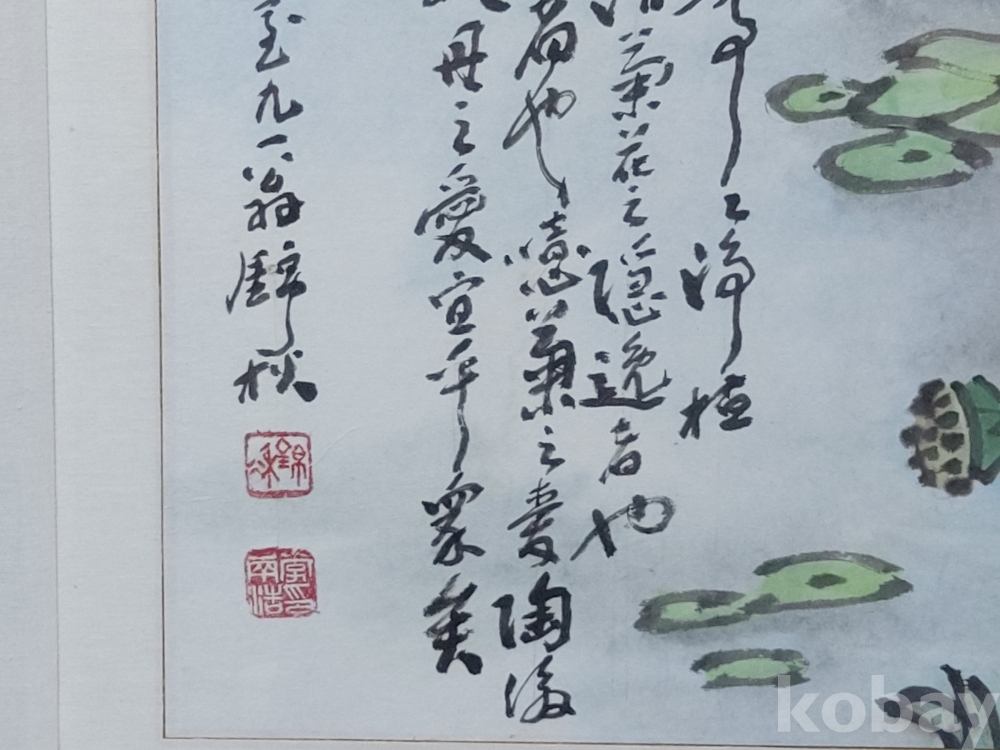 亭〻淨植
菊花之隱逸者也
也噫菊之愛陶後
丹之愛宜乎衆矣
九一翁錦秋
kobay